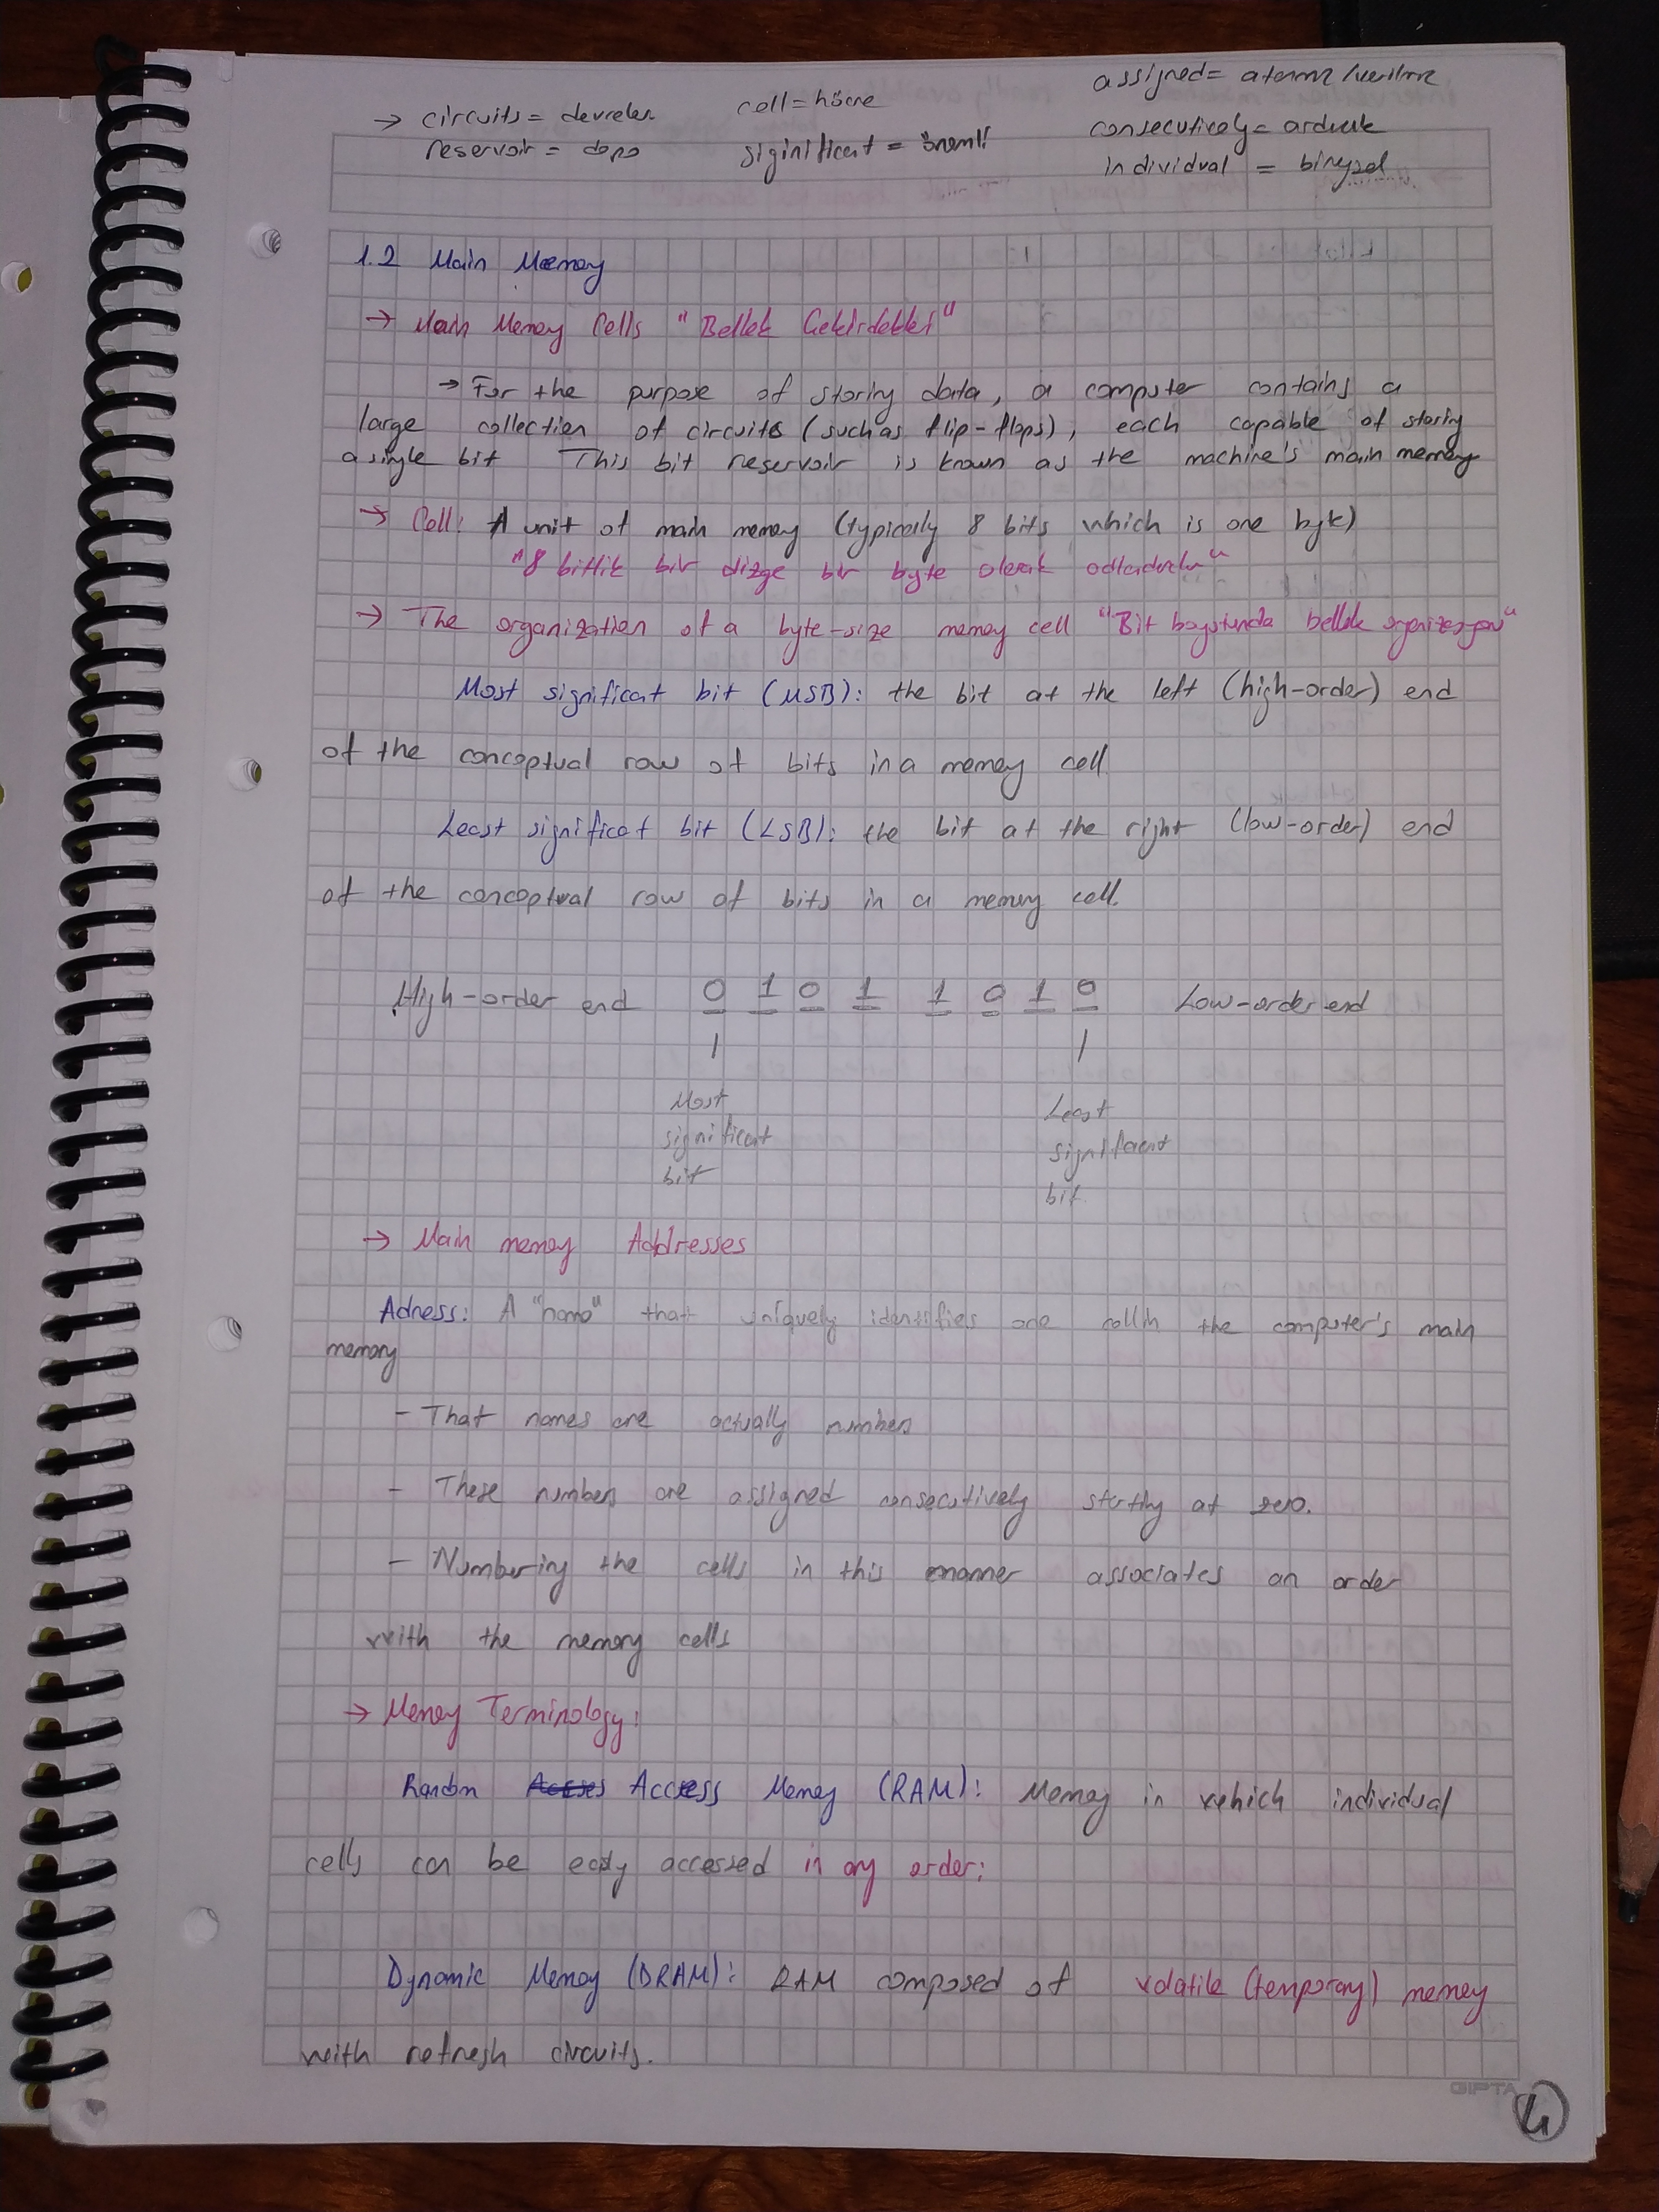 → circuits = devreler cell = hücre assigned = atanma / verilme
reservoir = depo significant = önemli consecutively = ardışık
individual = bireysel
1.2 Main Memory
→ Main Memory Cells "Bellek Çekirdekleri"
→ For the purpose of storing data, a computer contains a
large collection of circuits (such as flip-flops), each capable of storing
a single bit This bit reservoir is known as the machine's main memory
→ Cell: A unit of main memory (typically 8 bits which is one byte)
"8 bitlik bir dizge bir byte olarak adlandırılır"
→ The organization of a byte-size memory cell "Bit boyutunda bellek organizasyonu"
Most significant bit (MSB): the bit at the left (high-order) end
of the conceptual row of bits in a memory cell
Least significat bit (LSB): the bit at the right (low-order) end
of the conceptual row of bits in a memory cell.
High-order end 0 1 0 1 1 0 1 0 Low-order end
Most Least
significant significant
bit bit
→ Main memory Addresses
Adress: A "name" that uniquely identifies one cell in the computer's main
memory
- That names are actually numbers
- These numbers are assigned consecutively starting at zero.
- Numbering the cells in this manner associates an order
with the memory cells
→ Memory Terminology:
Random Access Memory (RAM): Memory in which individual
cells can be easly accessed in any order:
Dynamic Memory (DRAM): RAM composed of volatile (temporary) memory
with refresh circuits.
DIPTA
4